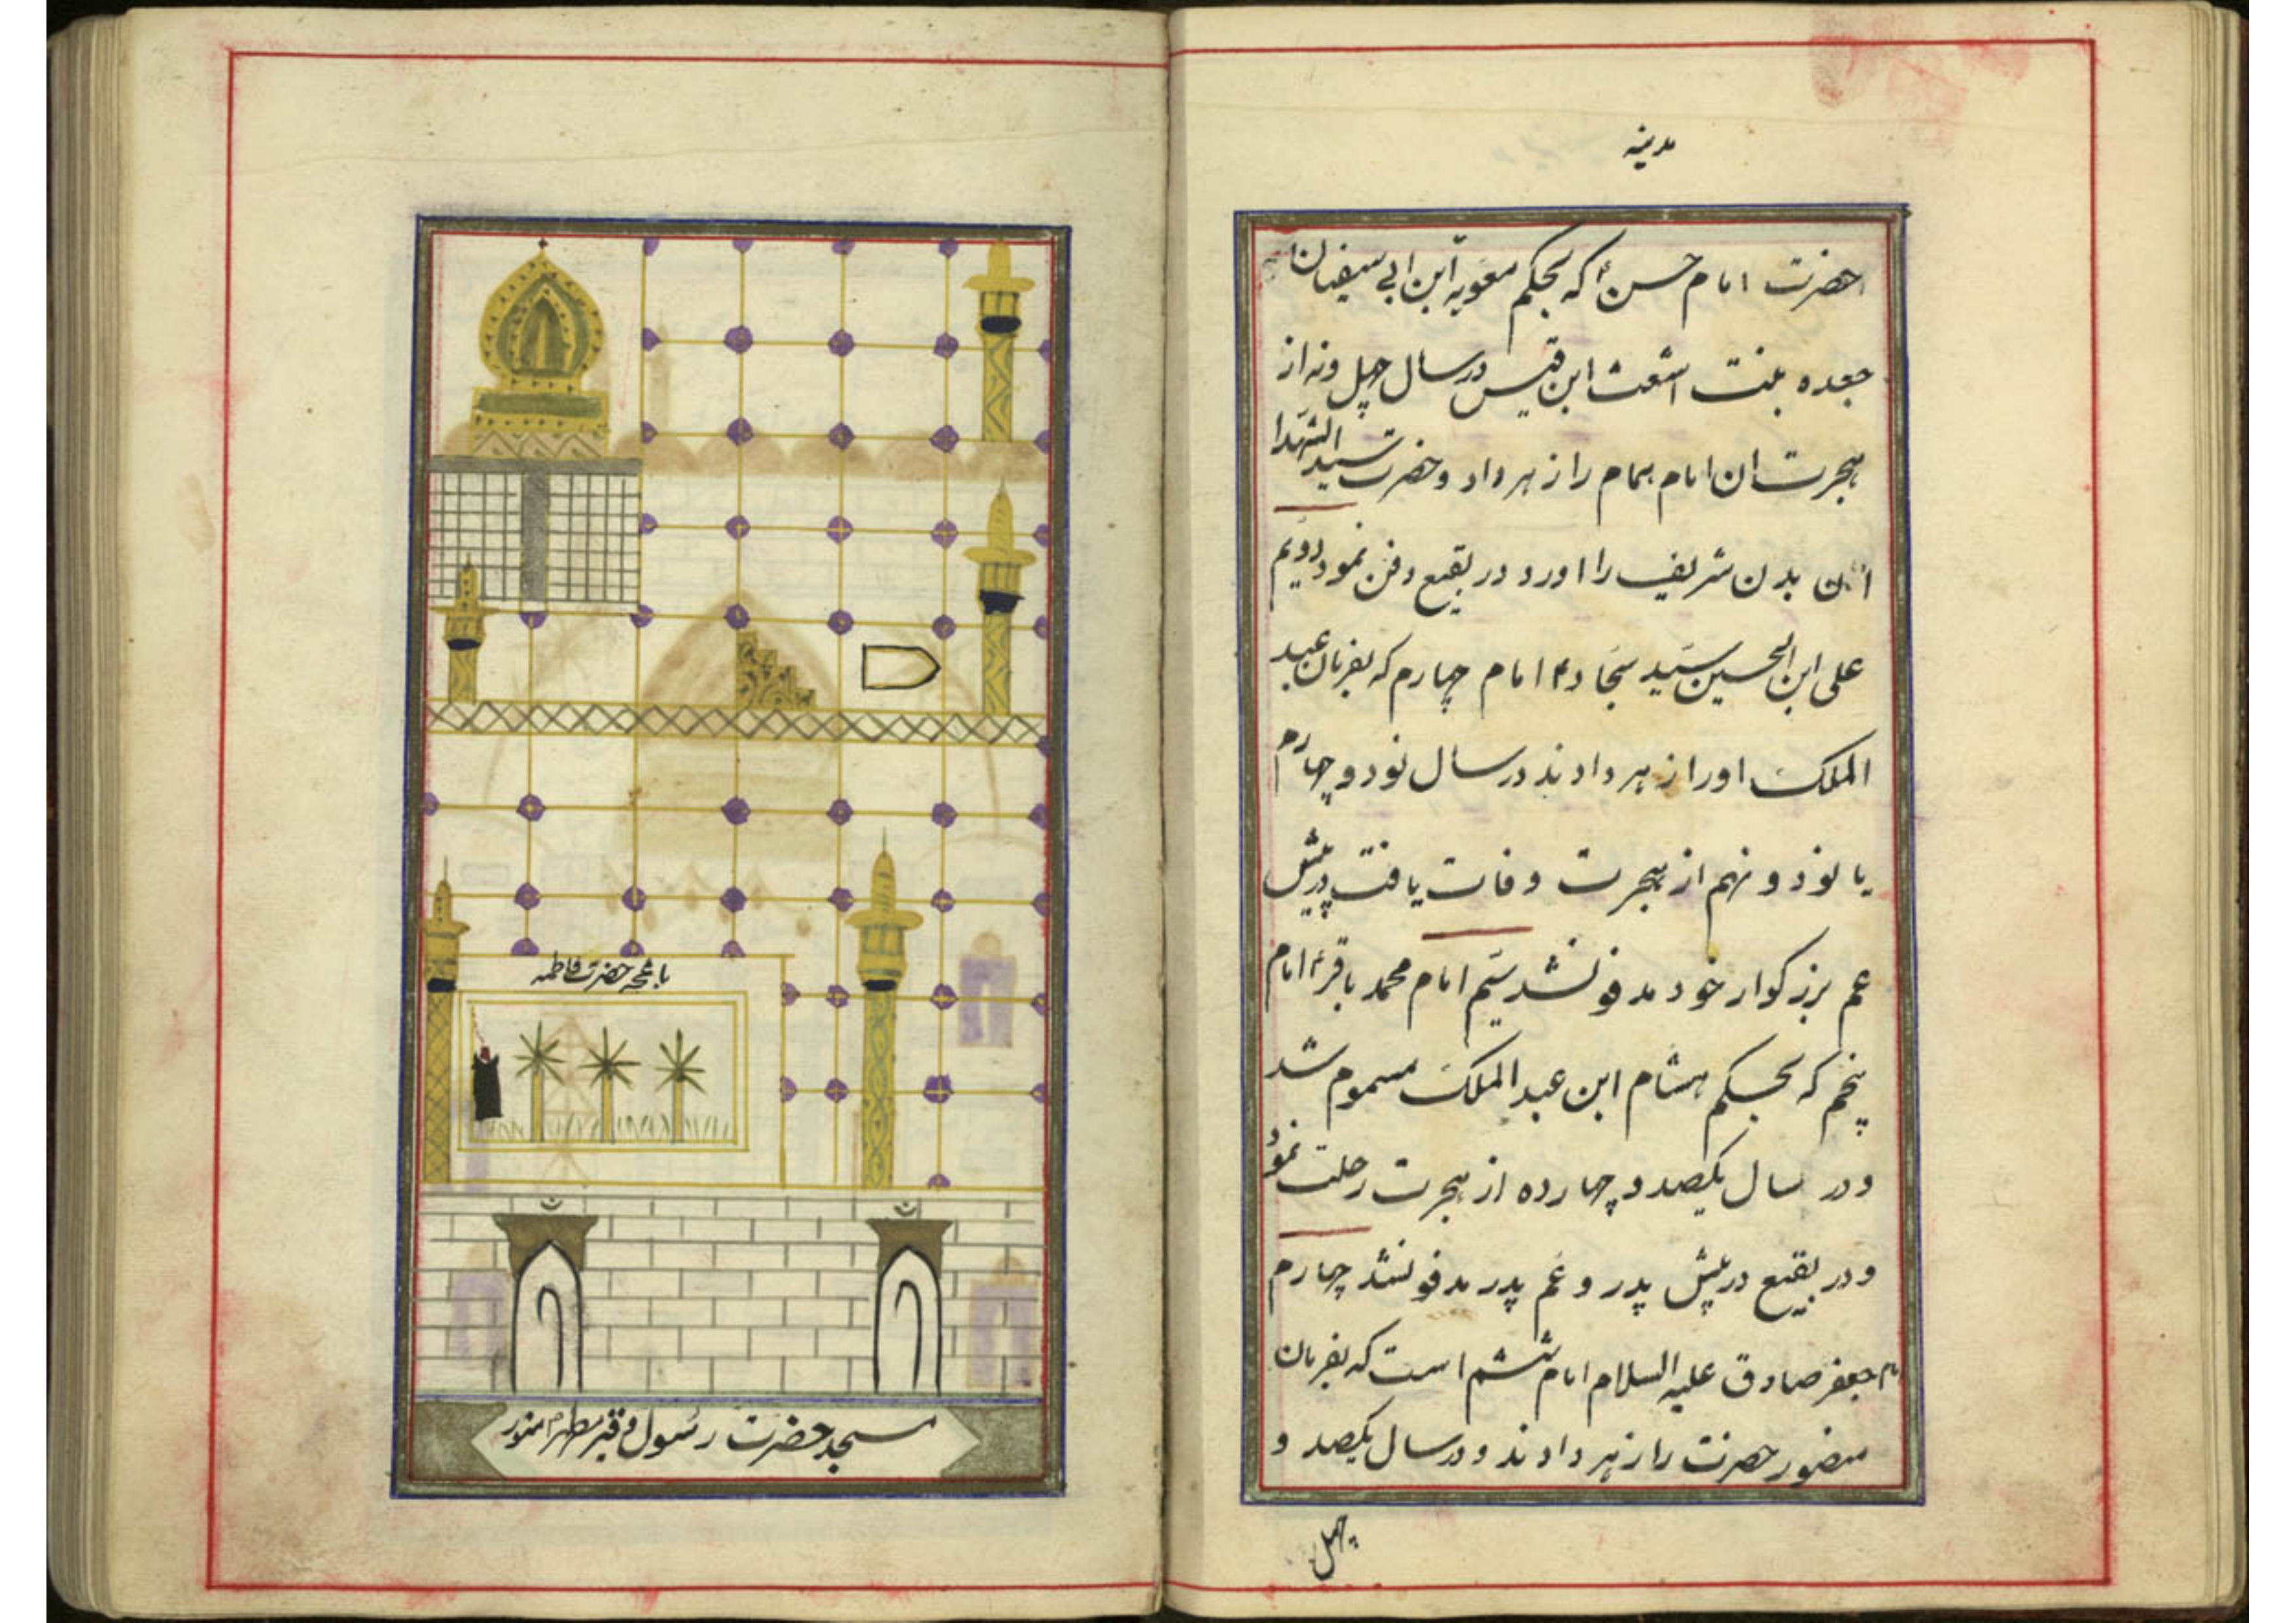 مدینه
حضرت امام حسن ؑ که بحکم معویه ابن ابی سیفیان
جعده بنت اشعث ابن قیس در سال چهل و نه از
هجرت ان امام همام را زهر داد و حضرت سید الشهدا
آن بدن شریف را اورد در بقیع دفن نمود دویم
علی ابن الحسین سید سجاد ؑ امام چهارم که بفرمان عبد
الملک او را زهر دادند در سال نود و چهارم
یا نود و نهم از هجرت وفات یافت در پیش
عم بزرکوار خود مدفون شد سیم امام محمد باقر ؑ امام
پنجم که بحکم هشام ابن عبد الملک مسموم شد
و در سال یکصد و چهارده از هجرت رحلت نمود
و در بقیع در پیش پدر و عم پدر مدفون شد چهارم
امام جعفر صادق علیه السلام امام ششم است که بفرمان
منصور حضرت را زهر دادند و در سال یکصد و
چهل
باغچه حضرت فاطمه
مسجد حضرت رسول و قبر مطهر منور